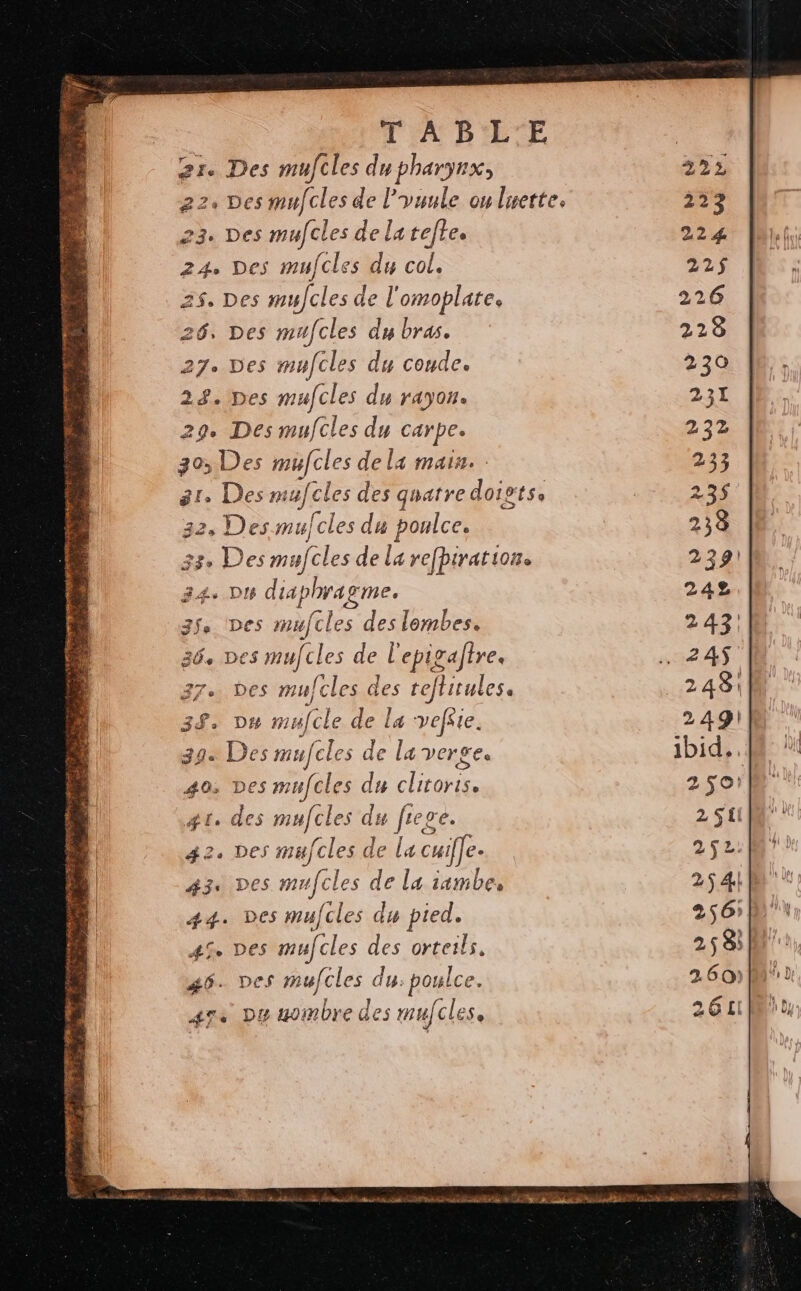 TABLE
21. Des muſcles du pharynx, 222
22. Des muſcles de l'vuule ou luette. 223
23. Des muſcles de la teſte. 224
24. Des muſcles du col. 225
25. Des muſcles de l'omoplate. 226
26. Des muſcles du bras. 228
27. Des muſcles du coude. 230
28. Des muſcles du rayon. 231
29. Des muſcles du carpe. 232
30. Des muſcles de la main. 233
31. Des muſcles des quatre doigts. 235
32. Des muſcles du poulce. 238
33. Des muſcles de la reſpiration. 239
34. Du diaphragme. 242
35. Des muſcles des lombes. 243
36. Des muſcles de l'epigaſtre. 245
37. Des muſcles des teſtitules. 248
38. Du muſcle de la veſsie. 249
39. Des muſcles de la verge. ibid.
40. Des muſcles du clitoris. 250
41. des muſcles du ſiege. 251
42. Des muſcles de la cuiſſe. 252
43. Des muſcles de la iambe. 254
44. Des muſcles du pied. 256
45. Des muſcles des orteils. 258
46. Des muſcles du poulce. 260
47. Du nombre des muſcles. 261